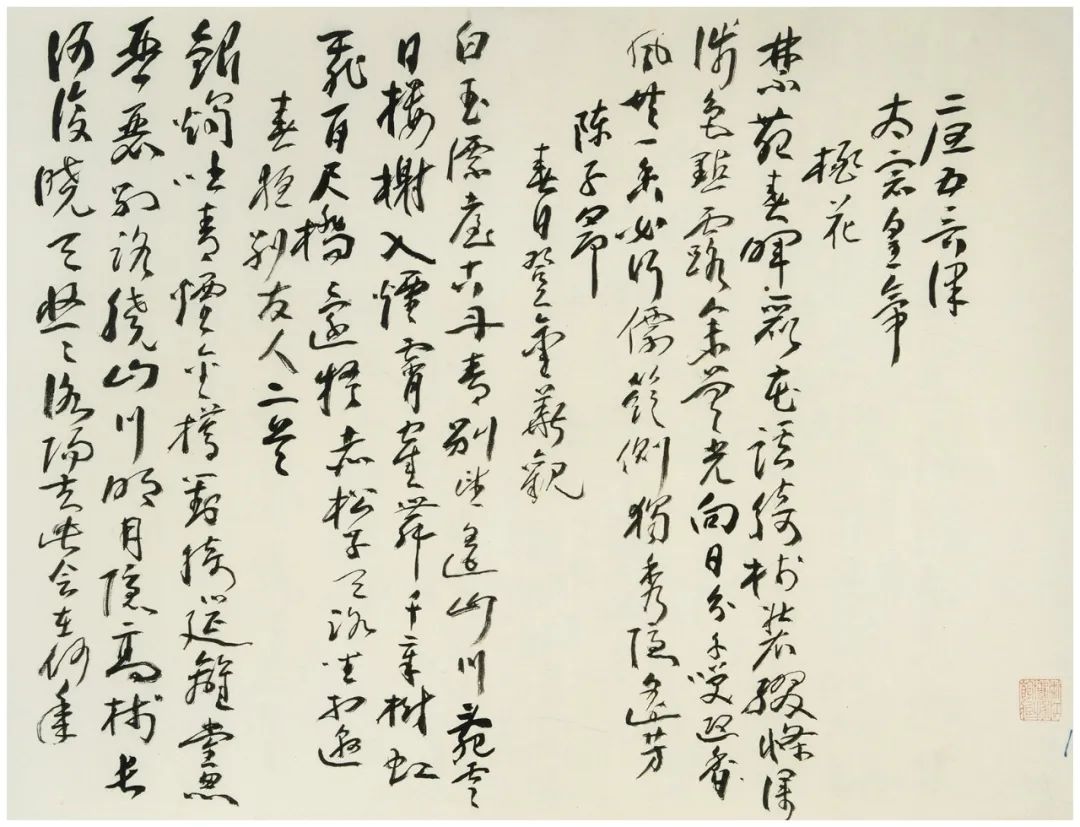 二唐五言律
太宗皇帝
桃花
禁苑春暉麗花蹊綺樹裝綴條深
淺色點露參差光向日分千笑迎香
風共一香如何仙嶺側獨秀隱遙芳
陳子昂
春日登金華觀
白玉仙臺古丹青別望遥山川亂雲
日樓榭入煙霄鶴舞千年樹虹
飛百尺橋還疑赤松子天路坐相邀
春夜别友人二首
銀燭吐青煙金樽對綺筵離堂思
琴瑟别路繞山川明月隱高樹長
河没曉天悠悠洛陽去此會在何年